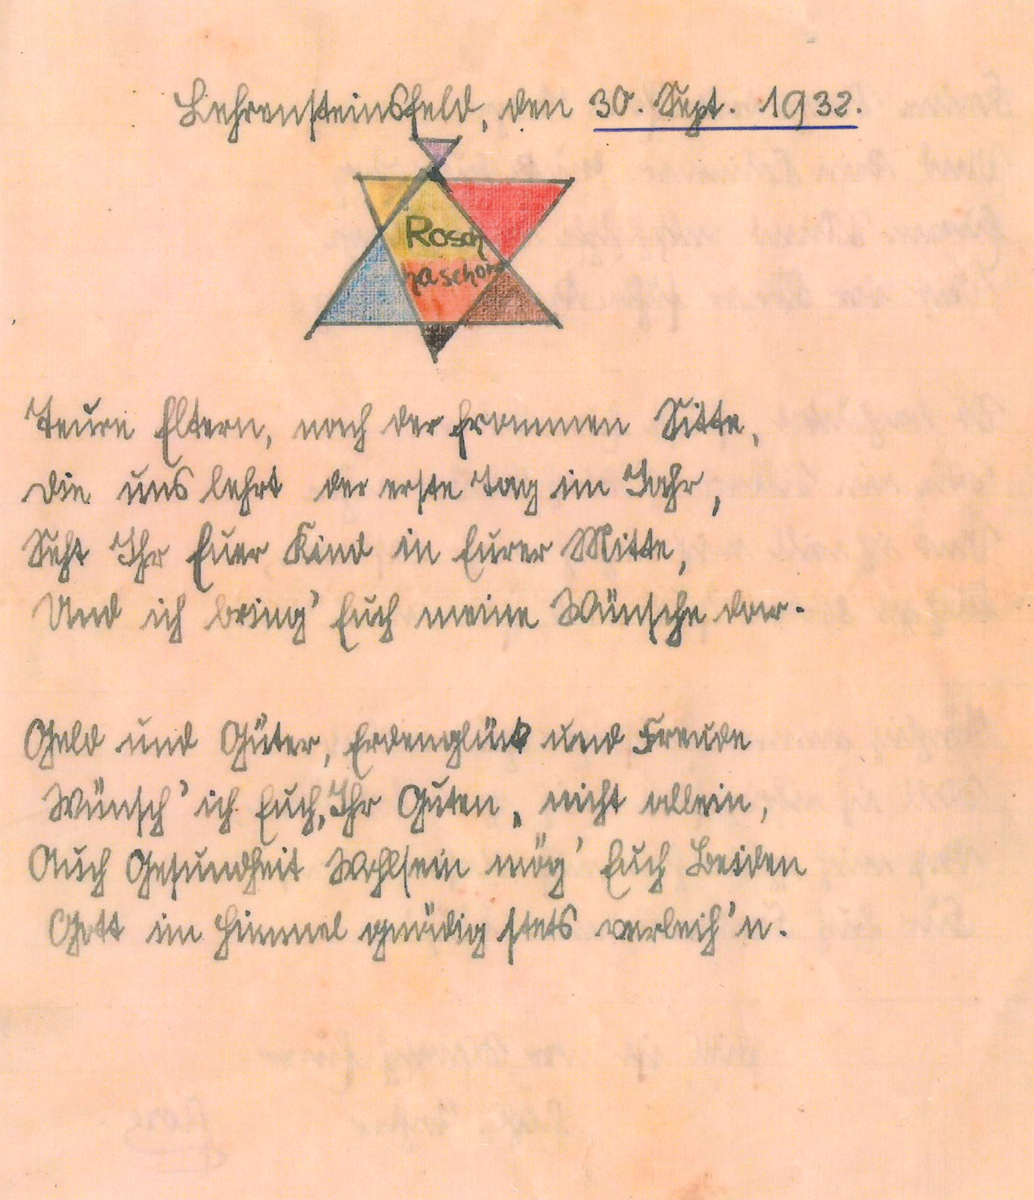 Lehrensteinsfeld, den 30. Sept. 1932.
Rosch
haschono
Teure Eltern, nach der frommen Sitte,
die uns lehrt der erste Tag im Jahr,
Seht Ihr Euer Kind in Eurer Mitte,
Und ich bring' Euch meine Wünsche dar.
Geld und Güter, Erdenglück und Freude
Wünsch' ich Euch, Ihr Guten, nicht allein,
Auch Gesundheit Wohlsein mög' Euch Beiden
Gott im Himmel gnädig stets verleih'n.